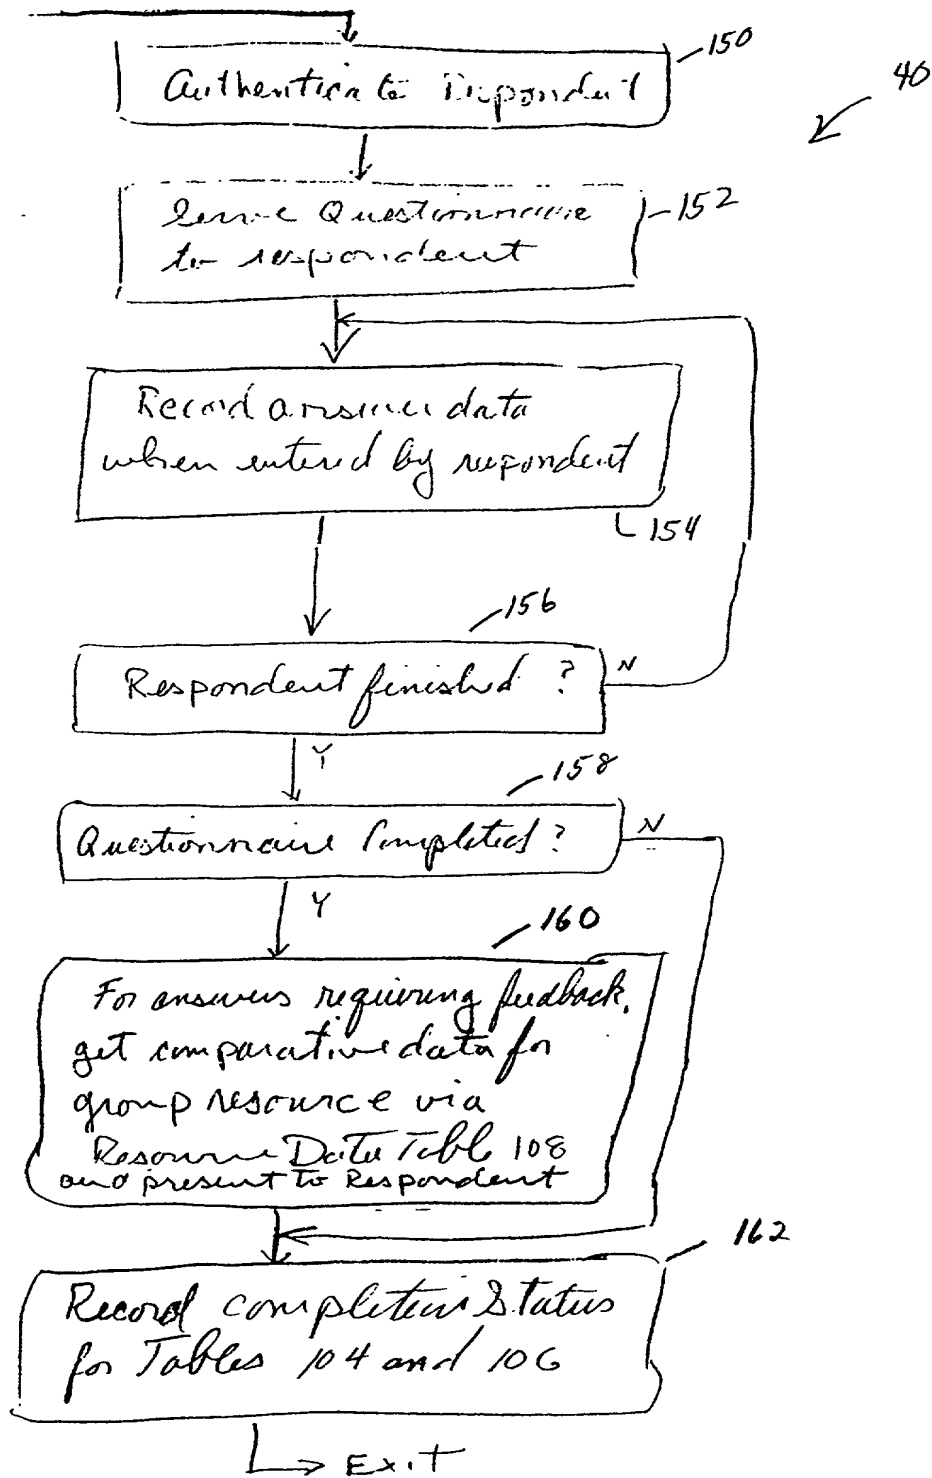 150
Authenticate Respondent
40
Serve Questionnaire
to respondent
152
Record answer data
when entered by respondent
154
156
Respondent finished ?
N
Y
158
Questionnaire Completed ?
N
Y
160
For answers requiring feedback,
get comparative data for
group resource via
Resource Data Table 108
and present to Respondent
162
Record completion Status
for Tables 104 and 106
Exit